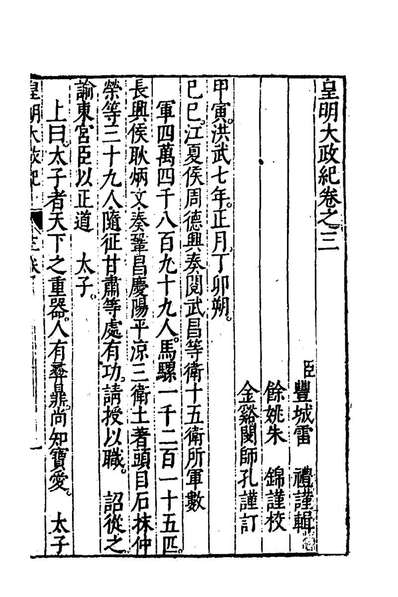 皇明大政紀卷之三
臣豐城雷 禮謹輯
餘姚朱 錦謹校
金谿閔師孔謹訂
甲寅。洪武七年。正月。丁卯朔。
己巳。江夏侯周德興奏閱武昌等衛十五衛所軍數
軍四萬四千八百九十九人。馬騾一千二百一十五匹。
長興侯耿炳文奏鞏昌慶陽平涼三衛土著頭目石抹仲
榮等三十九人隨征甘肅等處有功。請授以職。 詔從之
諭東宮臣以正道 太子。
上曰。太子者天下之重器。人有彝鼎。尚知寶愛。 太子
皇明大政紀